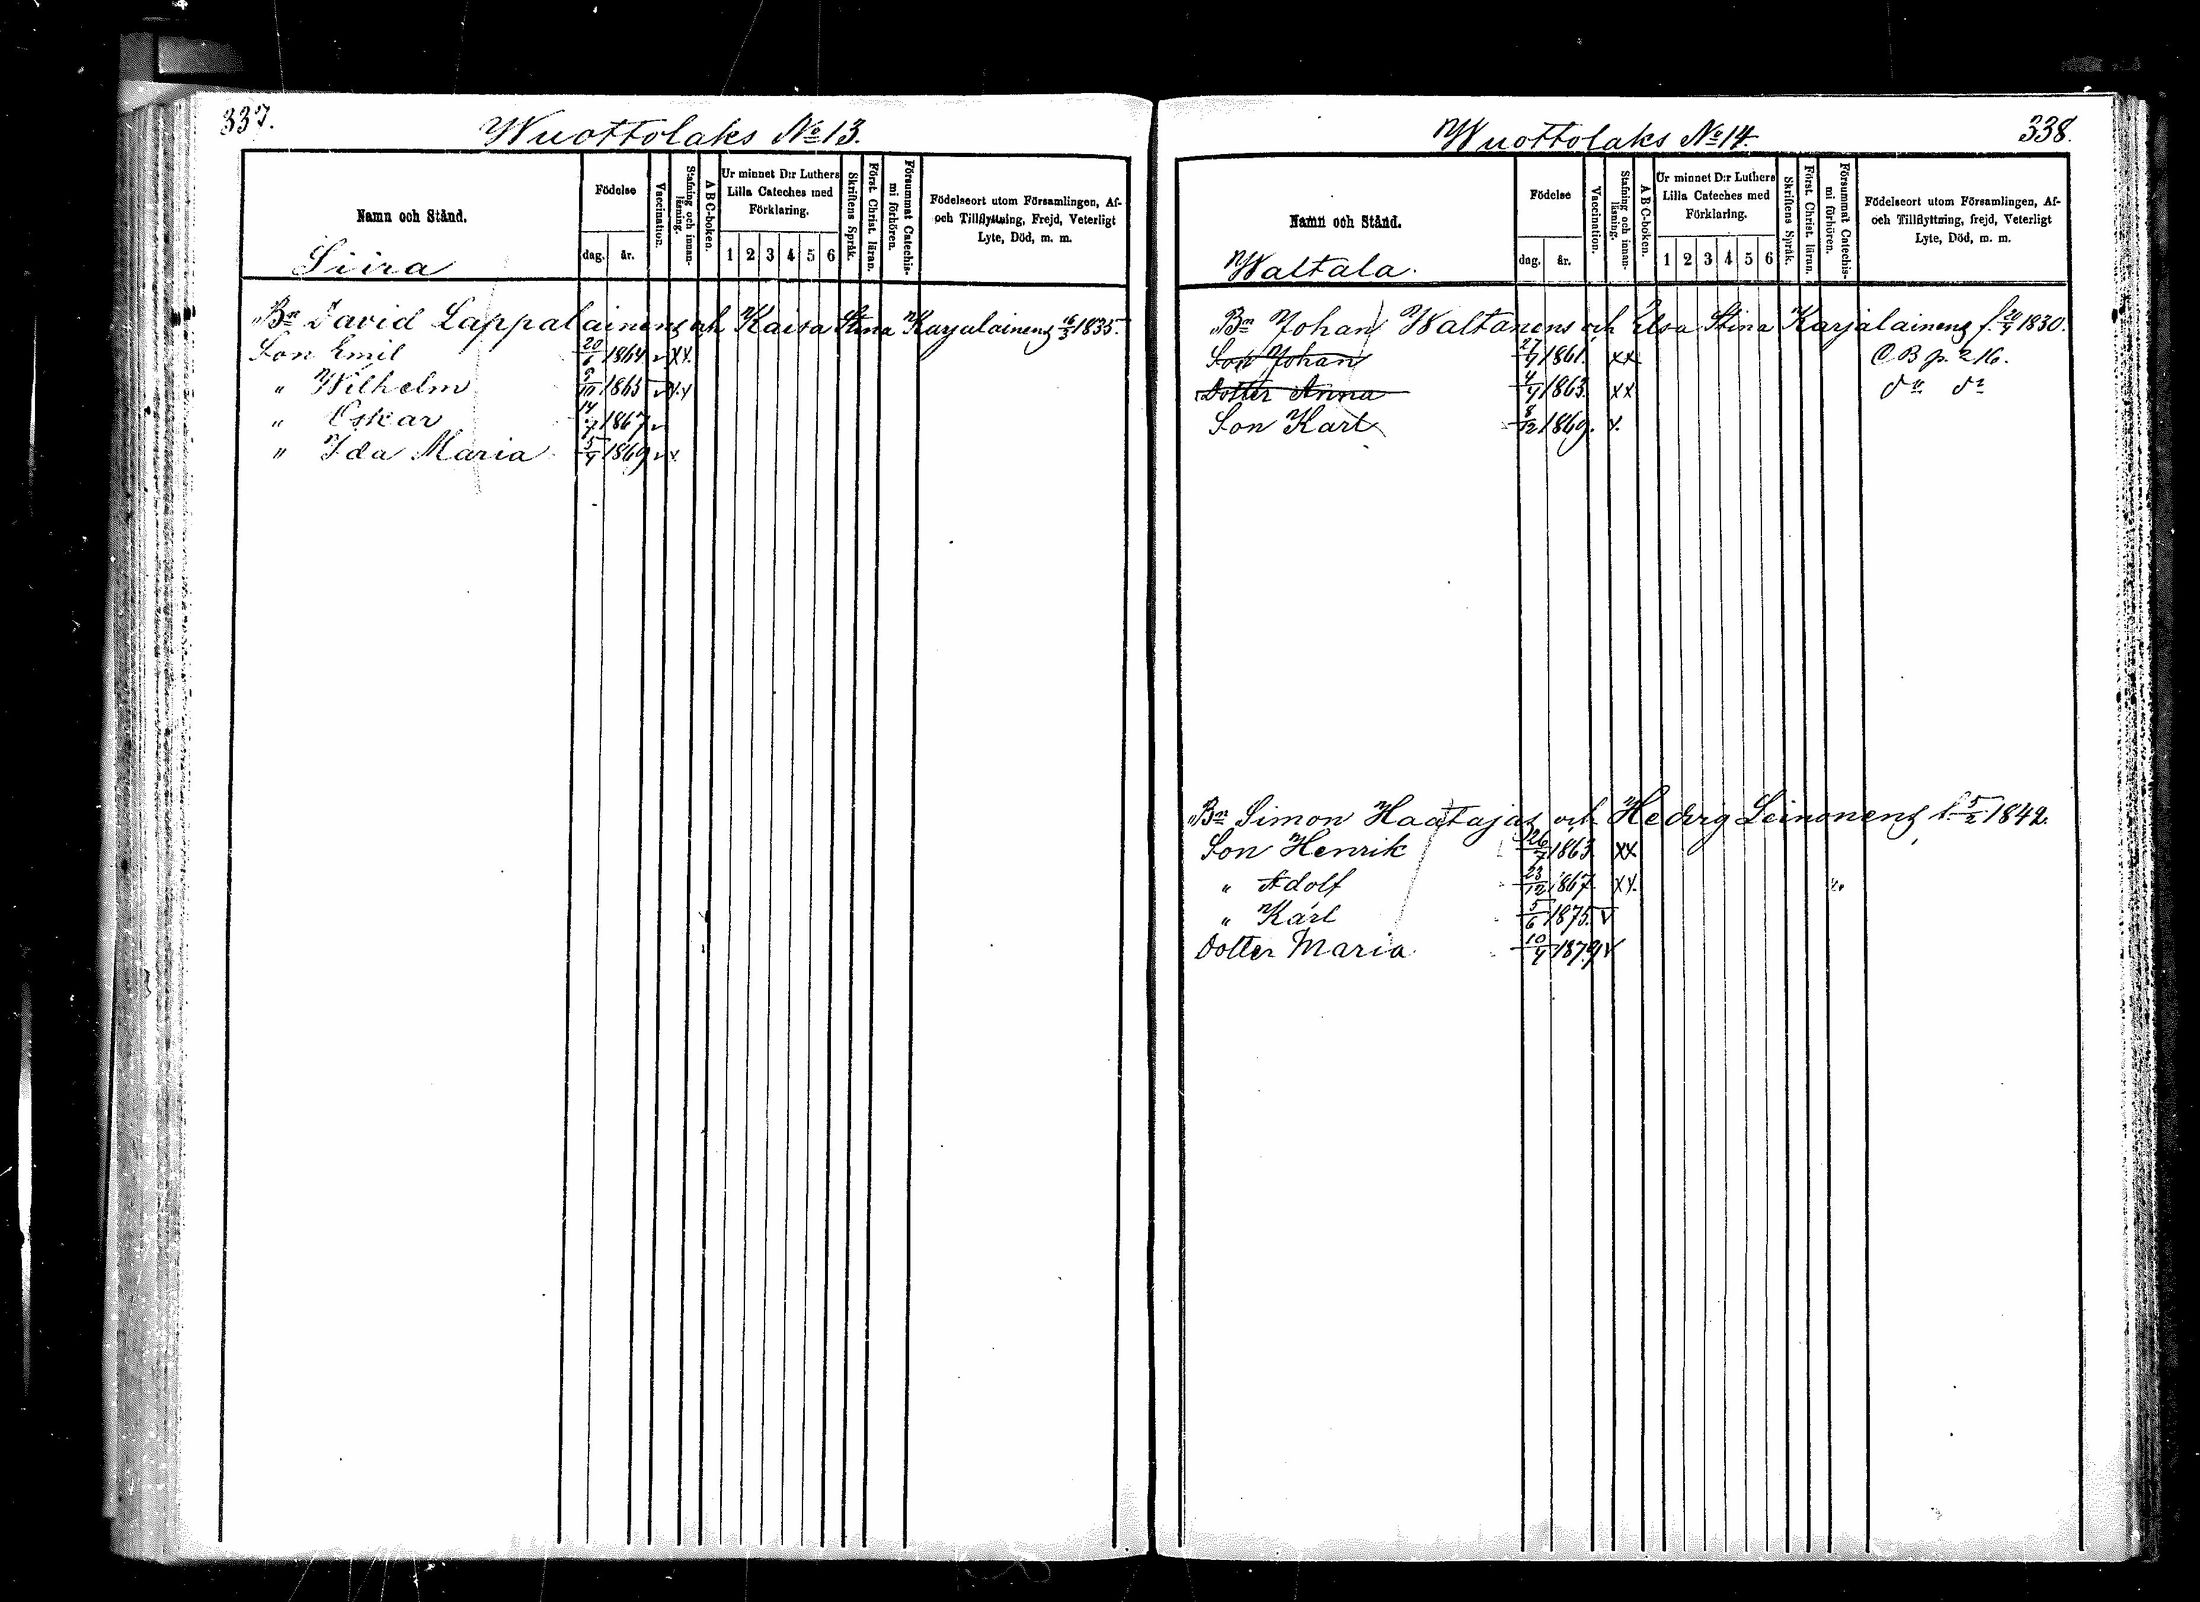 337.
Wuottolaks No 13.
Namn och Stånd.
Födelse
dag. år.
Vaccination.
Stafning och innanläsning.
ABC-boken.
Ur minnet D:r Luthers Lilla Cateches med Förklaring.
1 2 3 4 5 6
Skriftens Språk.
Först. Christ. läran.
Försummat Catechismi förhören.
Födelseort utom Församlingen, Af- och Tillflyttning, Frejd, Veterligt Lyte, Död, m. m.
Siira
Bn David Lappalainens och Kaisa Stina Karjalainens 16/3 1835.
Son Emil 20/6 1864 v xx.
" Wilhelm 9/10 1865 v xx
" Oskar 14/7 1867 v
" Ida Maria 5/4 1869 v x.
338.
Wuottolaks No 14.
Namn och Stånd.
Födelse
dag. år.
Vaccination.
Stafning och innanläsning.
ABC-boken.
Ur minnet D:r Luthers Lilla Cateches med Förklaring.
1 2 3 4 5 6
Skriftens Språk.
Först. Christ. läran.
Försummat Catechismi förhören.
Födelseort utom Församlingen, Af- och Tillflyttning, frejd, Veterligt Lyte, Död, m. m.
Waltala.
Bn Johan Waltanens och Elsa Stina Karjalainens f. 1830.
Son Johan 1861. xx C B p. 216.
Dotter Anna 1863. xx do do
Son Karl 8/12 1869. x.
Bn Simon Haatajas och Hedvig Leinonens f. 5/2 1842.
Son Henrik 26/7 1863 xx
" Adolf 23/12 1867. xx.
" Karl 5/6 1875. v
Dotter Maria 10/4 1879 v